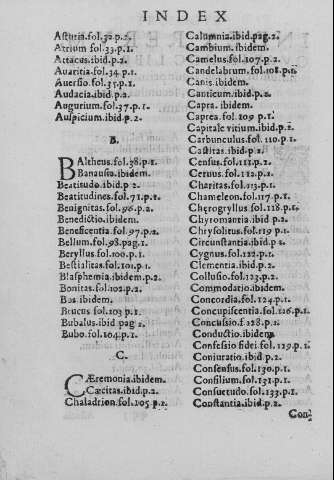 INDEX
Astutia.fol.32.p.2.
Atrium fol.33.p.1.
Attacus.ibid.p.2.
Avaritia.fol.34.p.1.
Aversio.fol.35.p.1.
Audacia.ibid.p.2.
Augurium.fol.37.p.1.
Auspicium.ibid.p.2.
B.
BAltheus.fol.38.p.1.
Banausia.ibidem.
Beatitudo.ibid.p.2.
Beatitudines.fol.71.p.1.
Benignitas.fol.96.p.2.
Benedictio.ibidem.
Beneficentia.fol.97.p.2.
Bellum.fol.98.pag.1.
Beryllus.fol.100.p.1.
Bestialitas.fol.101.p.1.
Blasphemia.ibidem.p.2.
Bonitas.fol.102.p.2.
Bos.ibidem.
Brucus fol.103 p.1.
Bubalus.ibid pag 2.
Bubo.fol.104.p.1.
C.
CÆremonia.ibidem.
Cæcitas.ibid.p.2.
Chaladrion.fol.105 p.1.
Calumnia.ibid.pag.2.
Cambium.ibidem.
Camelus.fol.107.p.2.
Candelabrum.fol.108.p.1.
Canis.ibidem.
Canticum.ibid.p.2.
Capra. ibidem.
Caprea.fol.109 p.1.
Capitale vitium.ibid.p.2.
Carbunculus.fol.110.p.1.
Castitas.ibid.p.2.
Census.fol.111.p.2.
Cervus.fol.112.p.2.
Charitas.fol.113.p.1.
Chameleon.fol.117.p.1.
Cherogryllus fol.118.p.1.
Chyromantia.ibid p.2.
Chrysolitus.fol.119 p.1.
Circunstantia.ibid.p 2.
Cygnus.fol.122.p.1.
Clementia.ibid.p.2.
Collusio.fol.123.p.2.
Commodatio.ibidem.
Concordia.fol.124.p.1.
Concupiscentia.fol.126.p.1.
Concussio.f.128.p.1.
Conductio.ibidem.
Confessio fidei.fol.129.p.1.
Coniuratio.ibid.p.2.
Consensus.fol.130.p.1.
Consilium.fol.131.p.1.
Consuetudo.fol.133.p.1.
Constantia.ibid.p.2.
Con-